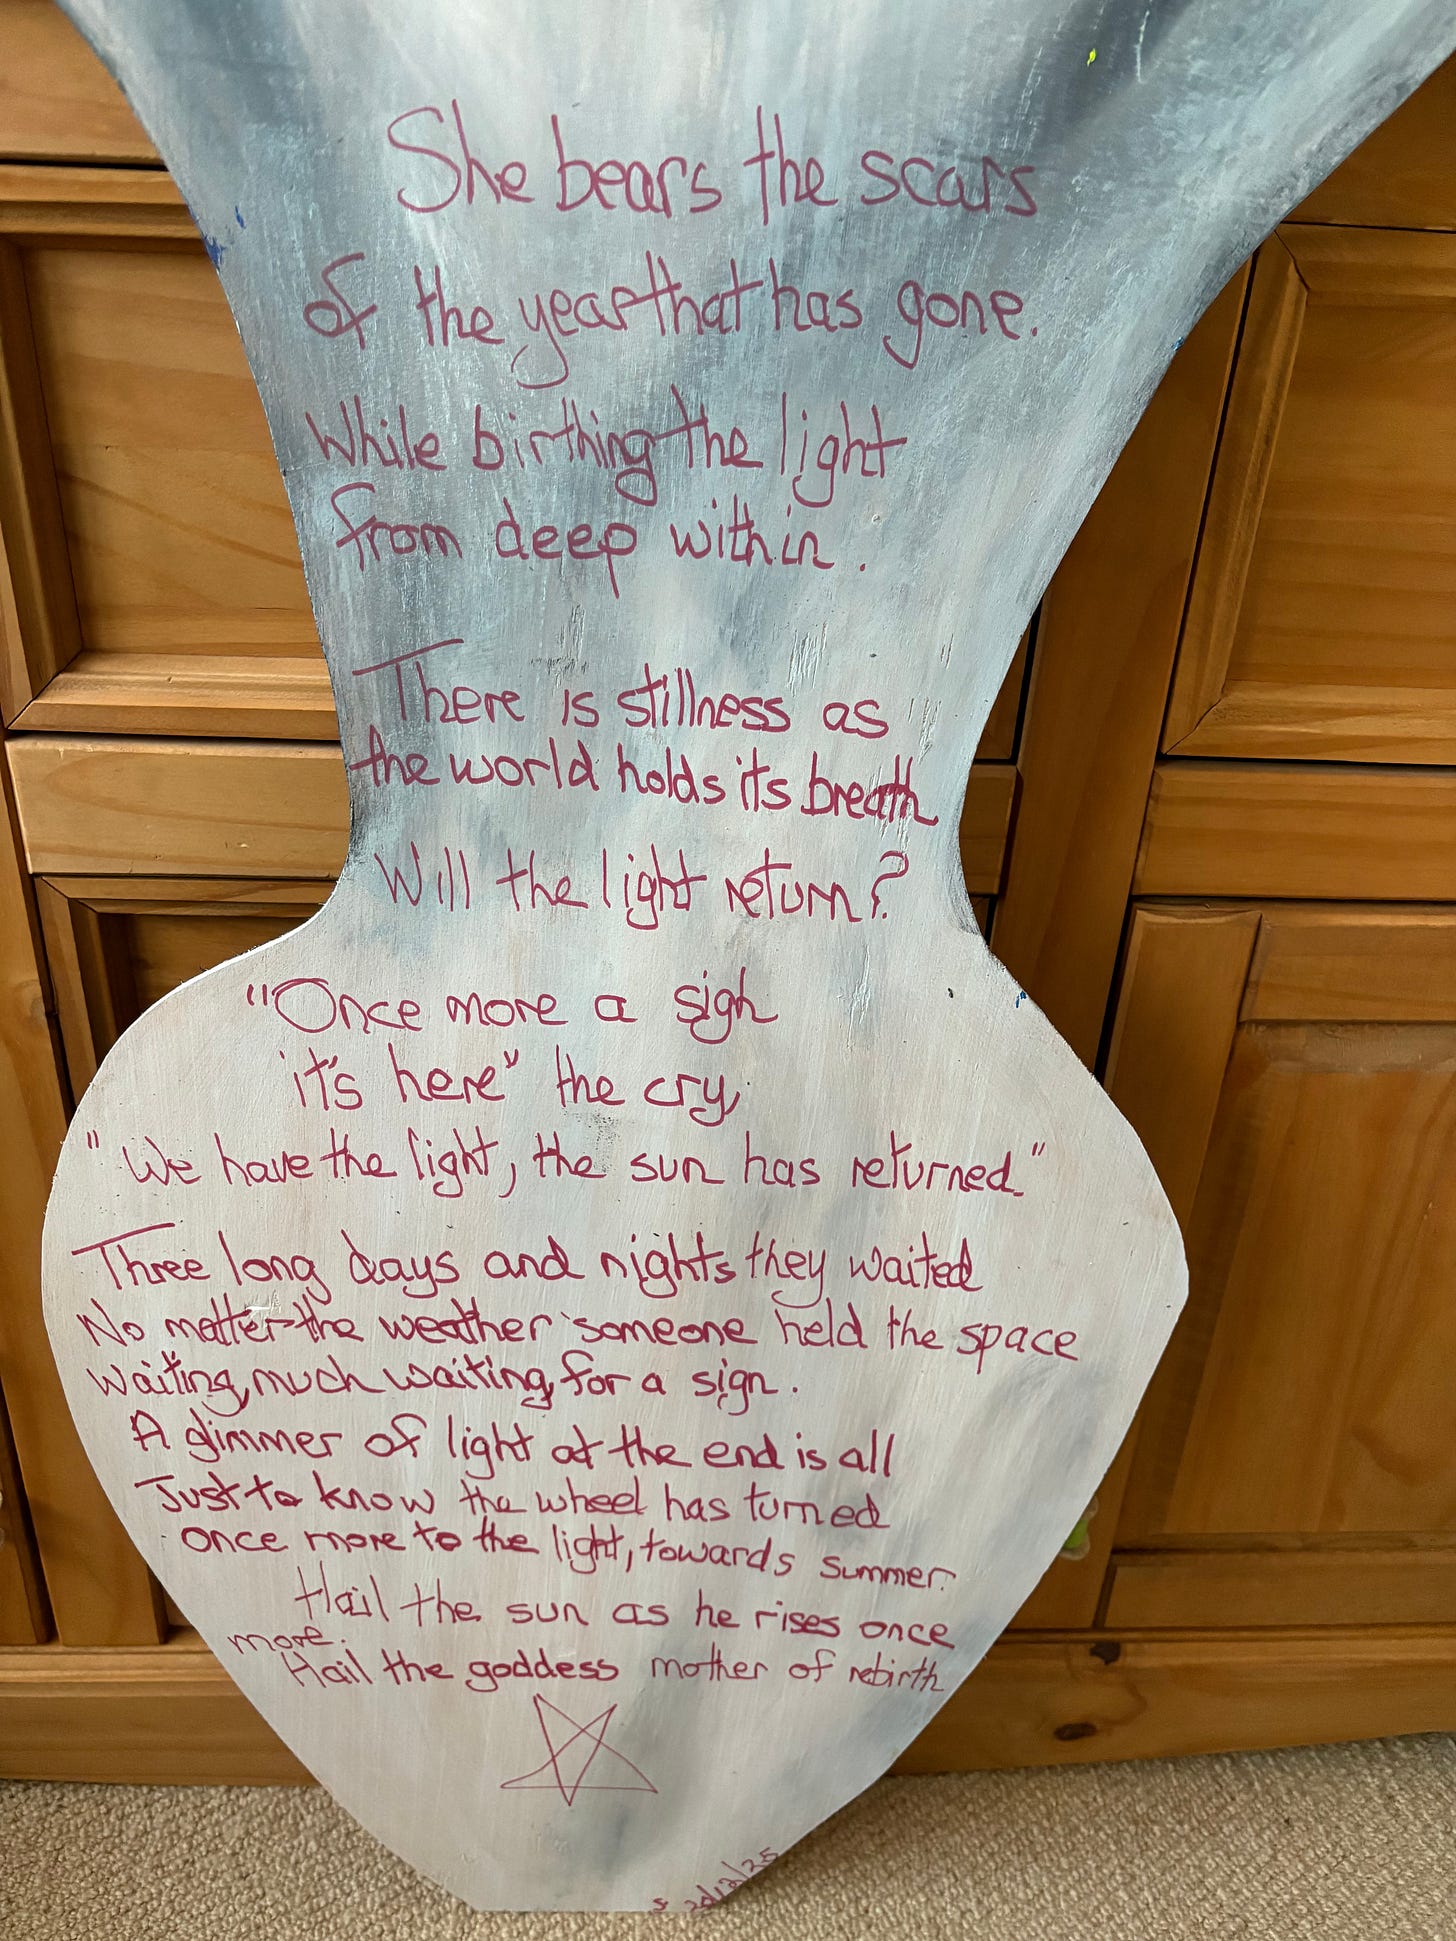 She bears the scars
of the year that has gone.
While birthing the light
from deep within.
There is stillness as
the world holds its breath
Will the light return?
"Once more a sigh
it's here" the cry,
"We have the light, the sun has returned."
Three long days and nights they waited
No matter the weather someone held the space
Waiting, much waiting, for a sign.
A glimmer of light at the end is all
Just to know the wheel has turned
once more to the light, towards summer.
Hail the sun as he rises once
more.
Hail the goddess mother of rebirth
20/12/25